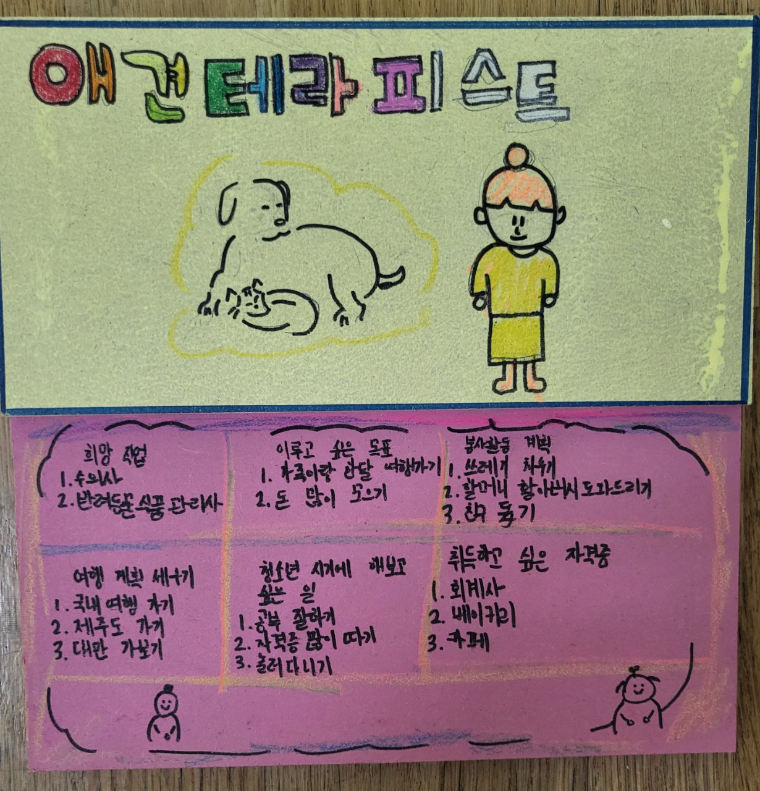 애견테라피스트
희망 직업
1. 수의사
2. 반려동물 식품 관리사
이루고 싶은 목표
1. 가족이랑 한달 여행가기
2. 돈 많이 모으기
봉사활동 계획
1. 쓰레기 치우기
2. 할머니 할아버지 도와드리기
3. 친구 돕기
여행 계획 세우기
1. 국내 여행 가기
2. 제주도 가기
3. 대만 가보기
청소년 시기에 해보고
싶은 일
1. 공부 잘하기
2. 자격증 많이 따기
3. 놀러다니기
취득하고 싶은 자격증
1. 회계사
2. 베이커리
3. 카페